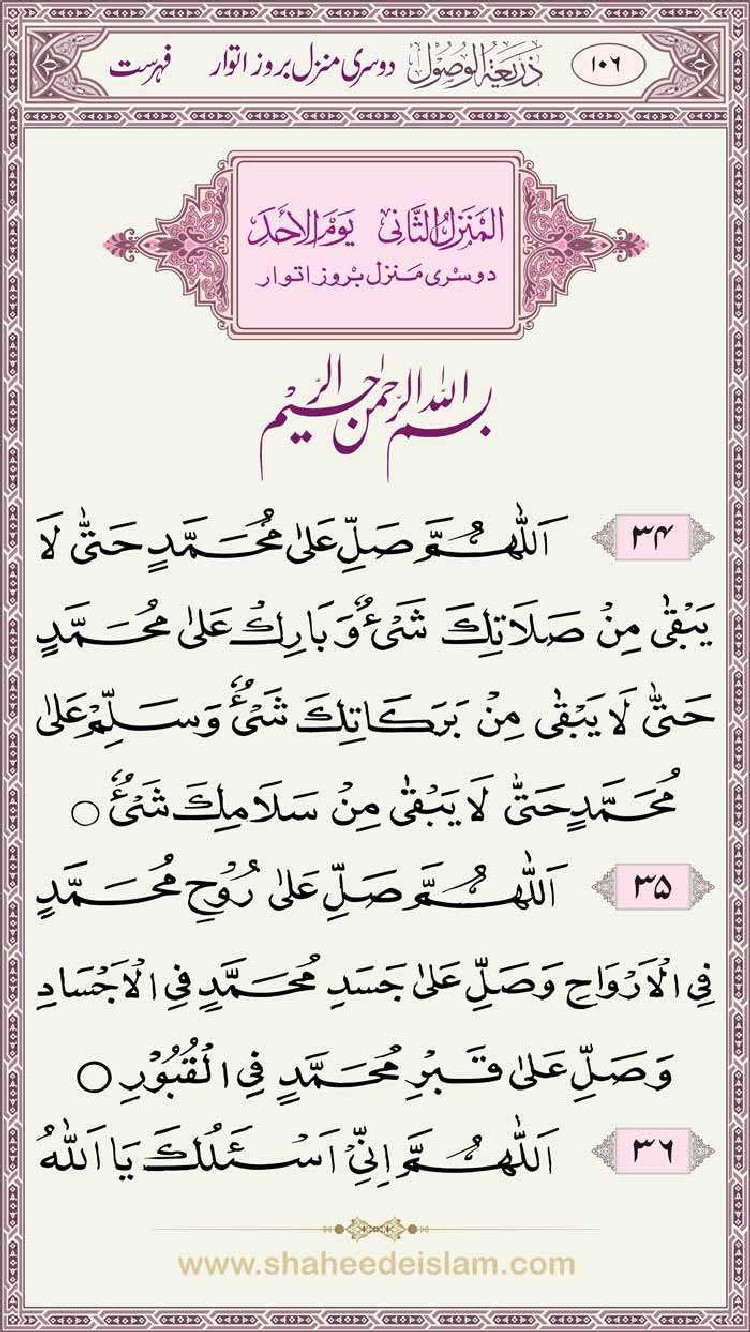 ۱۰۶ ذَرِیعَۃُ الوُصُول دوسری منزل بروز اتوار فہرست
المَنزِلُ الثَّانی یَومُ الاَحَد
دوسری منزل بروز اتوار
بسم اللہ الرحمٰن الرحیم
۳۴ اَللّٰهُمَّ صَلِّ عَلٰى مُحَمَّدٍ حَتّٰى لَا
يَبْقٰى مِنْ صَلَاتِكَ شَىْءٌ وَبَارِكْ عَلٰى مُحَمَّدٍ
حَتّٰى لَا يَبْقٰى مِنْ بَرَكَاتِكَ شَىْءٌ وَسَلِّمْ عَلٰى
مُحَمَّدٍ حَتّٰى لَا يَبْقٰى مِنْ سَلَامِكَ شَىْءٌ ○
۳۵ اَللّٰهُمَّ صَلِّ عَلٰى رُوْحِ مُحَمَّدٍ
فِي الْاَرْوَاحِ وَصَلِّ عَلٰى جَسَدِ مُحَمَّدٍ فِي الْاَجْسَادِ
وَصَلِّ عَلٰى قَبْرِ مُحَمَّدٍ فِي الْقُبُوْرِ ○
۳۶ اَللّٰهُمَّ اِنِّيْ اَسْئَلُكَ يَا اَللّٰهُ
www.shaheedeislam.com